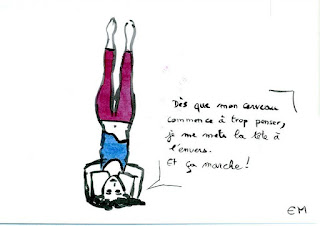 Dès que mon cerveau
commence à trop penser,
je me mets la tête à
l'envers.
Et ça marche !
EM